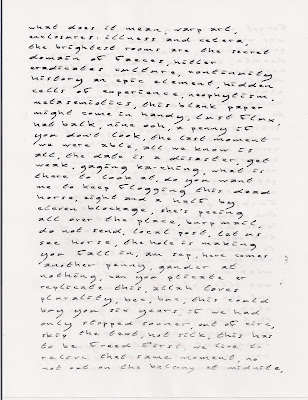 what does it mean, warp art,
enclosures: illness and cetera,
the brightest rooms are the secret
domain of faeces, hitler
eradicates culture, continuity
history an epic element, hidden
cells of experience, neophytism,
metasemiotics, this blank paper
might come in handy, last flax,
hat balk, nine ooh, a penny if
you don't look, the last moment
we were able, all we know is
all, the date is a disaster, get
weak, gaging ka-ching, what is
there to look at, do you want
me to keep flogging this dead
horse, eight and a half by
eleven blockage, she's peeing
all over the place, burp mail,
do not send, local post, let us
see horse, the hole is making
you fall in, am sep, here comes
another penny, gander at
nothing, can you plicate or
replicate this, allah loves
plurality, bee, bre, this could
buy you six years, if we had
only stopped sooner, out of
skip the text, not silk, this has
to be freed first, we live to
relive that same moment, no
not out on the balcony at midnite,